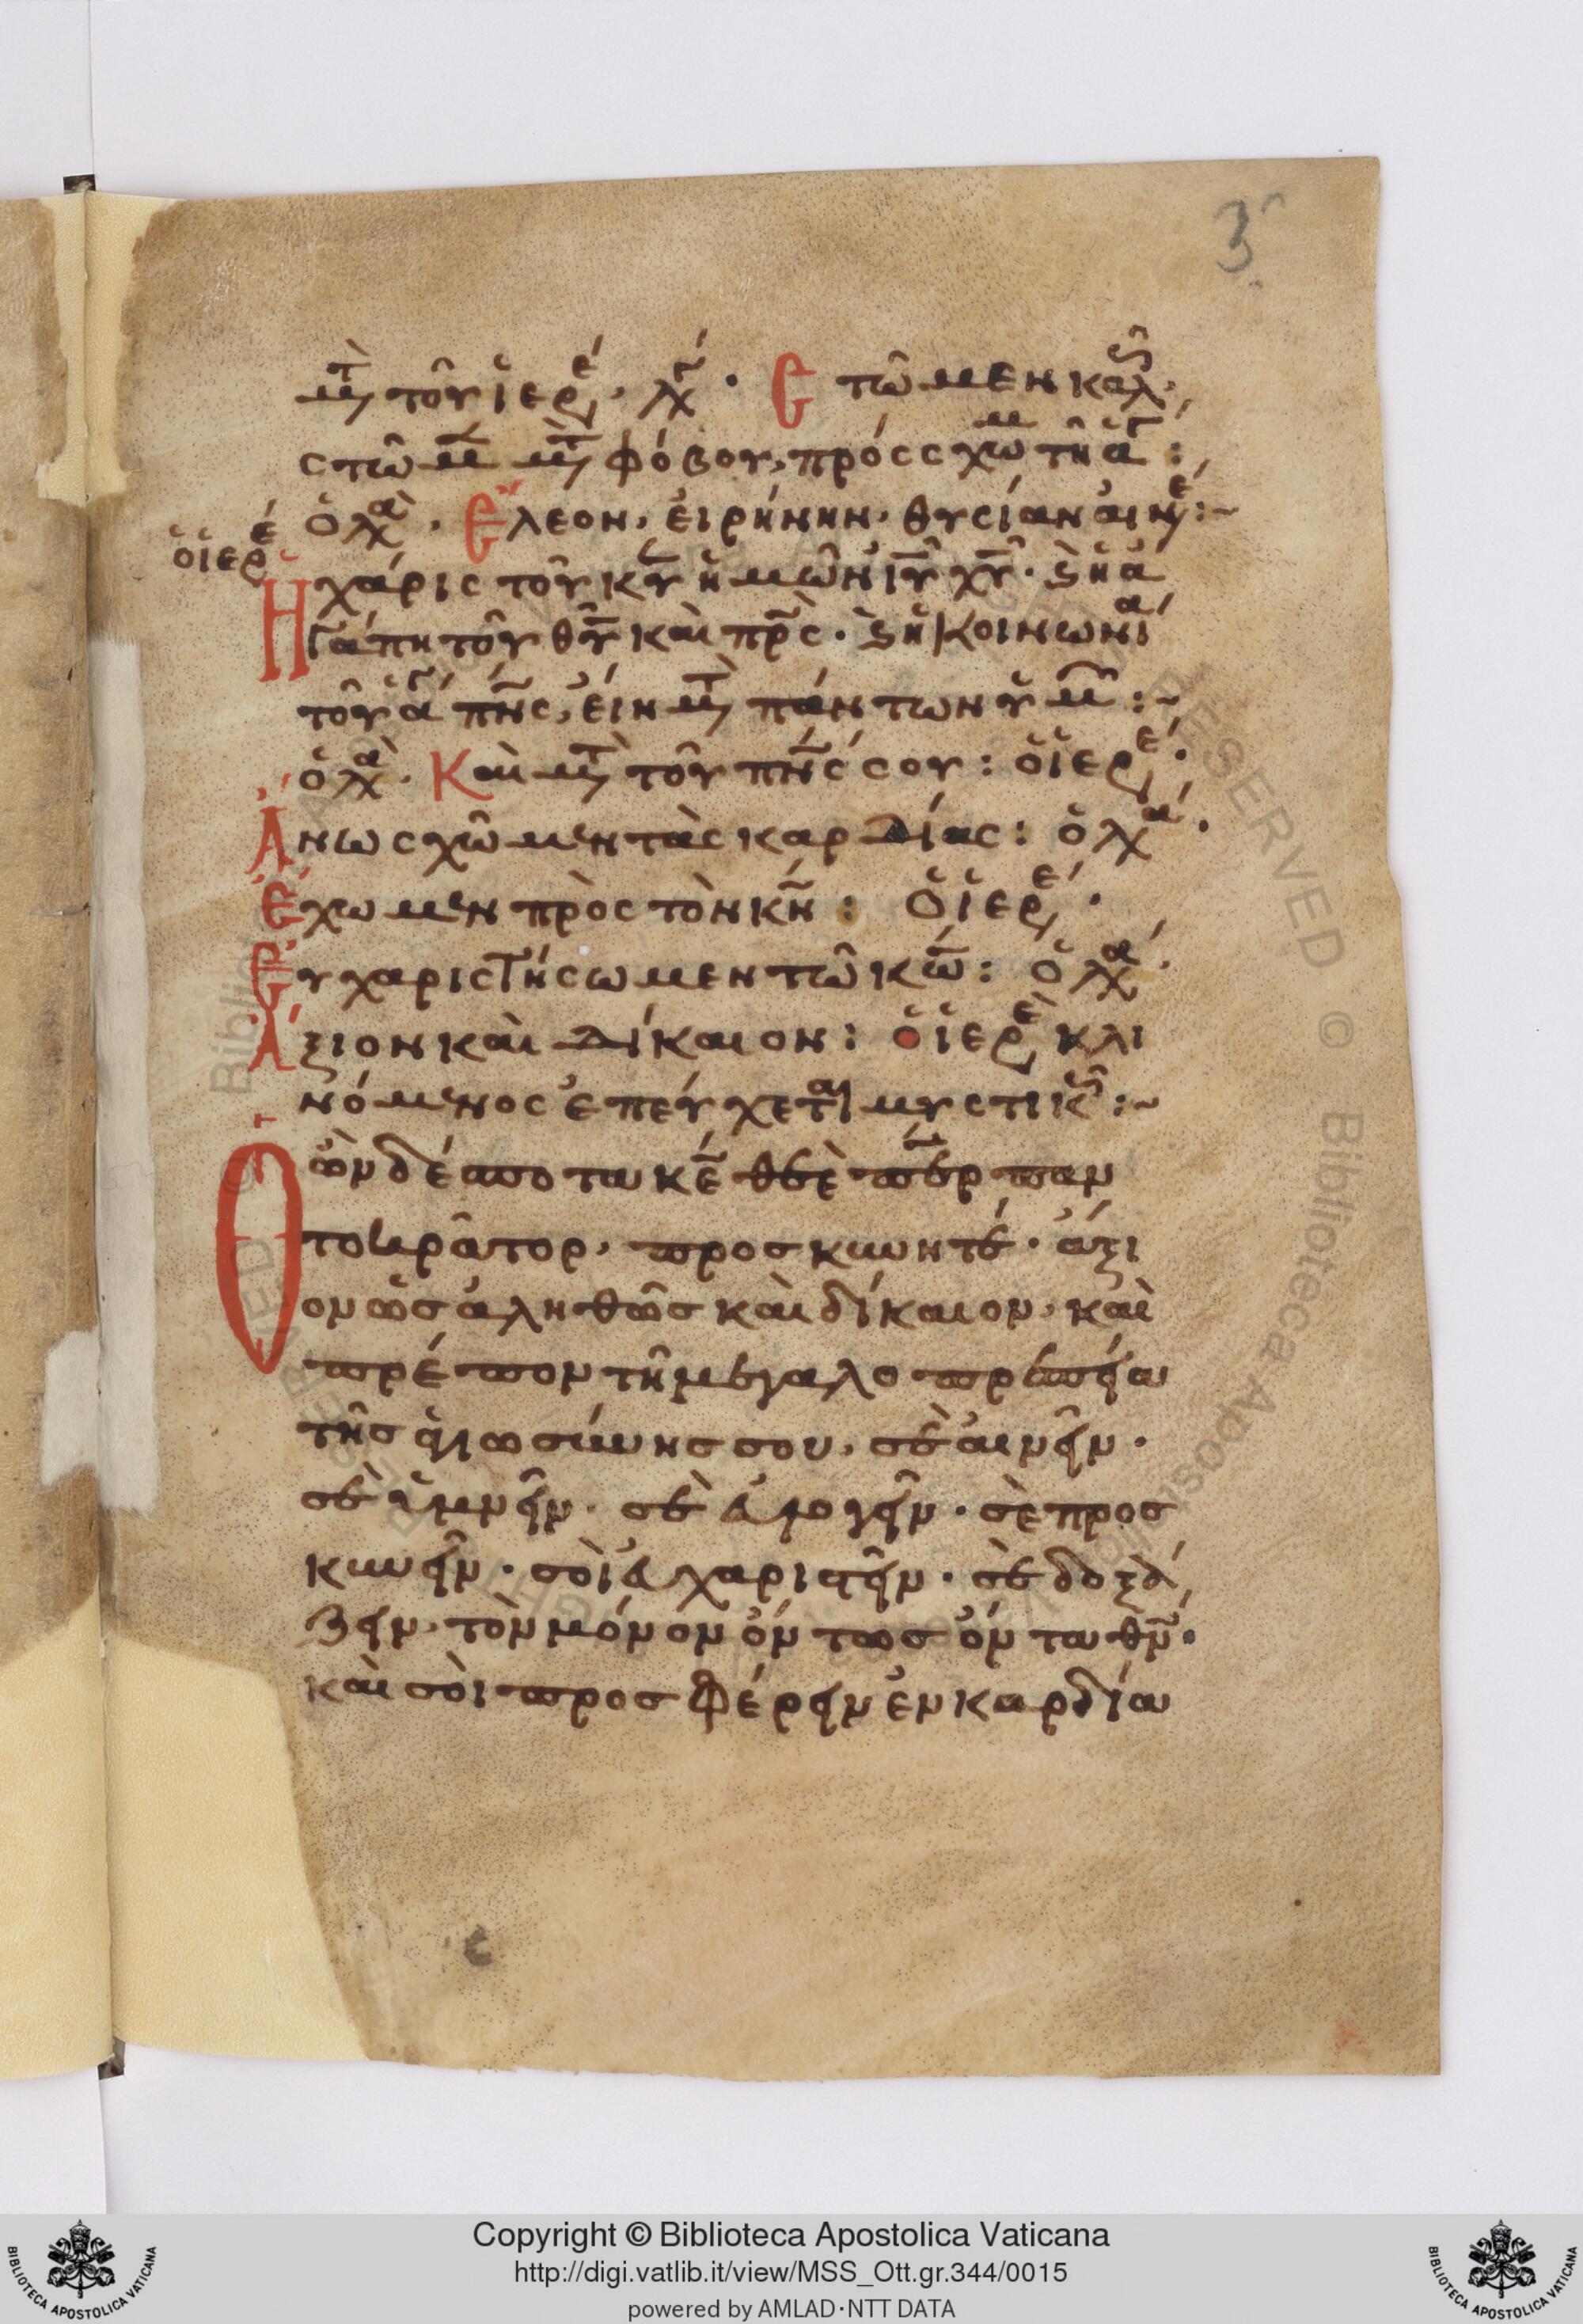 3
μτ̀ τοῦ ἱερέ· λγ́· Στῶμεν καλῶ,
στῶμ μτ̀ φόβου, πρόσσχωμ τῆ ἁγ:
ὁ λα· Ἔλεον, εἰρήνην, θυσίαν αἰνέ:~
ὁ ἱερέ
Ἡ χάρις τοῦ κυ ἡμῶν ιυ χυ· ϗ ἡ ἀ
γάπη τοῦ θυ καὶ πρς· ϗ ἡ κοινωνία
τοῦ ἁγ πνς, εἴη μτ̀ πάντων ὑμ:~
ὁ λα· Καὶ μτ̀ τοῦ πνς σου: ὁ ἱερέ·
Ἄνω σχῶμεν τὰς καρδίας: ὁ λα·
Ἔχωμεν πρὸς τὸν κν: ὁ ἱερέ·
Εὐχαριστήσωμεν τῶ κω: ὁ λα·
Ἄξιον καὶ δίκαιον: ὁ ἱερὲ κλι
νόμενος ἐπεύχεται μυστικῶ:~
Ὁ ὢν δέσποτα κε θεὲ περ παν
τοκράτορ, προσκυνητέ· ἄξι
ον ὡς ἀληθῶς καὶ δίκαιον, καὶ
πρέπον τῆ μεγαλοπρεπεία
τῆς ἁγιωσύνης σου, σὲ αἰνεῖν·
σὲ ὑμνεῖν· σὲ εὐλογεῖν· σὲ προσ
κυνεῖν· σοὶ εὐχαριστεῖν· σὲ δοξά
ζειν, τὸν μόνον ὄντως ὄντα θν·
καὶ σοὶ προσφέρειν ἐν καρδία
Copyright © Biblioteca Apostolica Vaticana
http://digi.vatlib.it/view/MSS_Ott.gr.344/0015
powered by AMLAD·NTT DATA
BIBLIOTECA APOSTOLICA VATICANA
BIBLIOTECA APOSTOLICA VATICANA